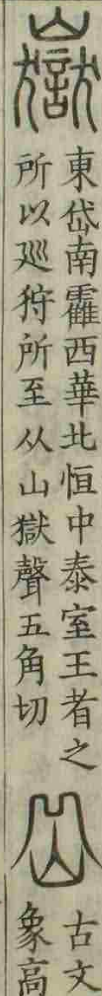 嶽
東岱南靃西華北恒中泰室王者之
所以廵狩所至从山獄聲五角切
古文
象高